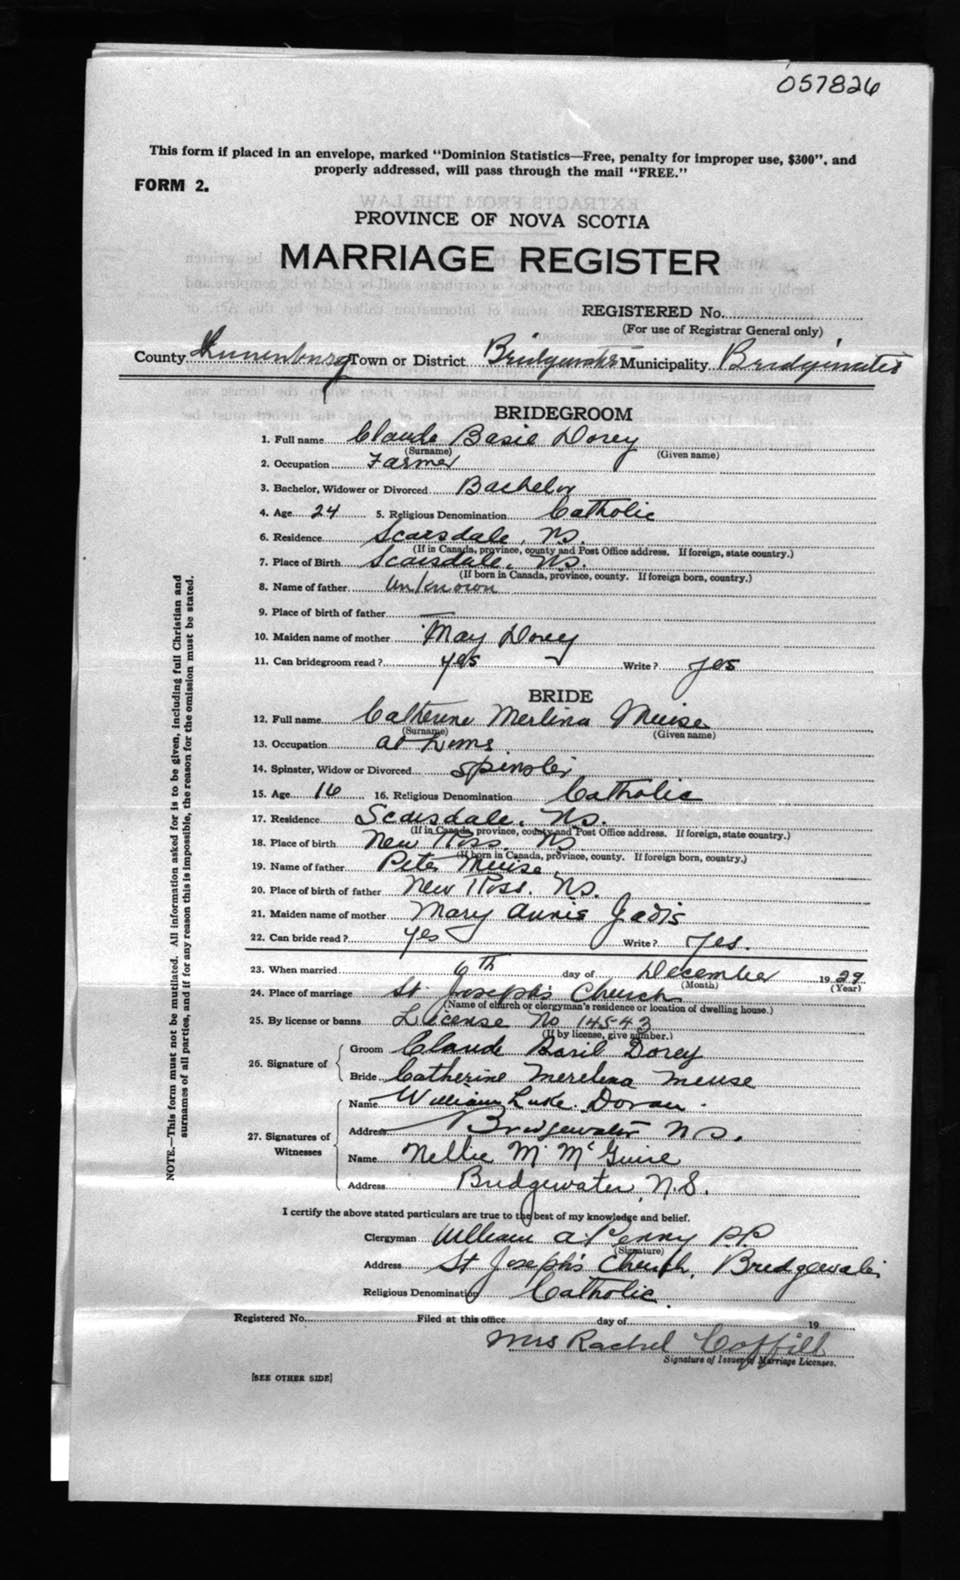 057826
This form if placed in an envelope, marked "Dominion Statistics—Free, penalty for improper use, $300", and
properly addressed, will pass through the mail "FREE."
FORM 2.
PROVINCE OF NOVA SCOTIA
MARRIAGE REGISTER
REGISTERED No.
(For use of Registrar General only)
County Lunenburg Town or District Bridgewater Municipality Bridgewater
BRIDEGROOM
1. Full name Claude Basil Dorey
(Surname) (Given name)
2. Occupation Farmer
3. Bachelor, Widower or Divorced Bachelor
4. Age 24 5. Religious Denomination Catholic
6. Residence Scarsdale, NS.
(If in Canada, province, county and Post Office address. If foreign, state country.)
7. Place of Birth Scarsdale, NS.
(If born in Canada, province, county. If foreign born, country.)
8. Name of father unknown
9. Place of birth of father —
10. Maiden name of mother May Dorey
11. Can bridegroom read? yes Write? yes
BRIDE
12. Full name Catherine Merlina Meuse
(Surname) (Given name)
13. Occupation at home
14. Spinster, Widow or Divorced Spinster
15. Age 16 16. Religious Denomination Catholic
17. Residence Scarsdale, NS.
(If in Canada, province, county and Post Office address. If foreign, state country.)
18. Place of birth New Ross, NS
(If born in Canada, province, county. If foreign born, country.)
19. Name of father Peter Meuse
20. Place of birth of father New Ross, NS.
21. Maiden name of mother Mary Annie Jadis
22. Can bride read? yes Write? yes.
23. When married 6th day of December 1929
(Month) (Year)
24. Place of marriage St Joseph's Church
(Name of church or clergyman's residence or location of dwelling house.)
25. By license or banns License No 14543
(If by license, give number.)
26. Signature of Groom Claude Basil Dorey
Bride Catherine Merelina Meuse
27. Signatures of Witnesses Name William Luke Doran
Address Bridgewater N.S.
Name Nellie M. McGuire
Address Bridgewater, N.S.
I certify the above stated particulars are true to the best of my knowledge and belief.
Clergyman William A. Penny P.P
(Signature)
Address St Joseph's Church, Bridgewater
Religious Denomination Catholic.
Registered No. Filed at this office day of 19
Mrs Rachel Coffill
Signature of Issuer of Marriage Licenses.
[SEE OTHER SIDE]
NOTE.—This form must not be mutilated. All information asked for is to be given, including full Christian and
surnames of all parties, and if for any reason this is impossible, the reason for the omission must be stated.